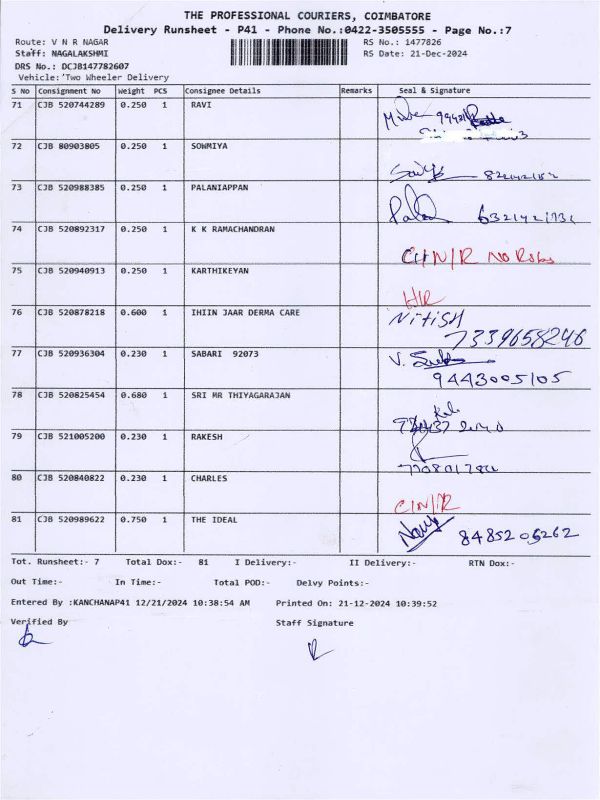 THE PROFESSIONAL COURIERS, COIMBATORE
Delivery Runsheet - P41 - Phone No.:0422-3505555 - Page No.:7
Route: V N R NAGAR RS No.: 1477826
Staff: NAGALAKSHMI RS Date: 21-Dec-2024
DRS No.: DCJB147782607
Vehicle: Two Wheeler Delivery
S No Consignment No Weight PCS Consignee Details Remarks Seal & Signature
71 CJB 520744289 0.250 1 RAVI
72 CJB 80903805 0.250 1 SOWMIYA
73 CJB 520988385 0.250 1 PALANIAPPAN
74 CJB 520892317 0.250 1 K K RAMACHANDRAN
C/N/R NO
75 CJB 520940913 0.250 1 KARTHIKEYAN
76 CJB 520878218 0.600 1 IHIIN JAAR DERMA CARE NITISH
7339658246
77 CJB 520936304 0.230 1 SABARI 92073 V.
9443005105
78 CJB 520825454 0.680 1 SRI MR THIYAGARAJAN
79 CJB 521005200 0.230 1 RAKESH
80 CJB 520840822 0.230 1 CHARLES
C/N/R
81 CJB 520989622 0.750 1 THE IDEAL 8485206262
Tot. Runsheet:- 7 Total Dox:- 81 I Delivery:- II Delivery:- RTN Dox:-
Out Time:- In Time:- Total POD:- Delvy Points:-
Entered By :KANCHANAP41 12/21/2024 10:38:54 AM Printed On: 21-12-2024 10:39:52
Verified By Staff Signature